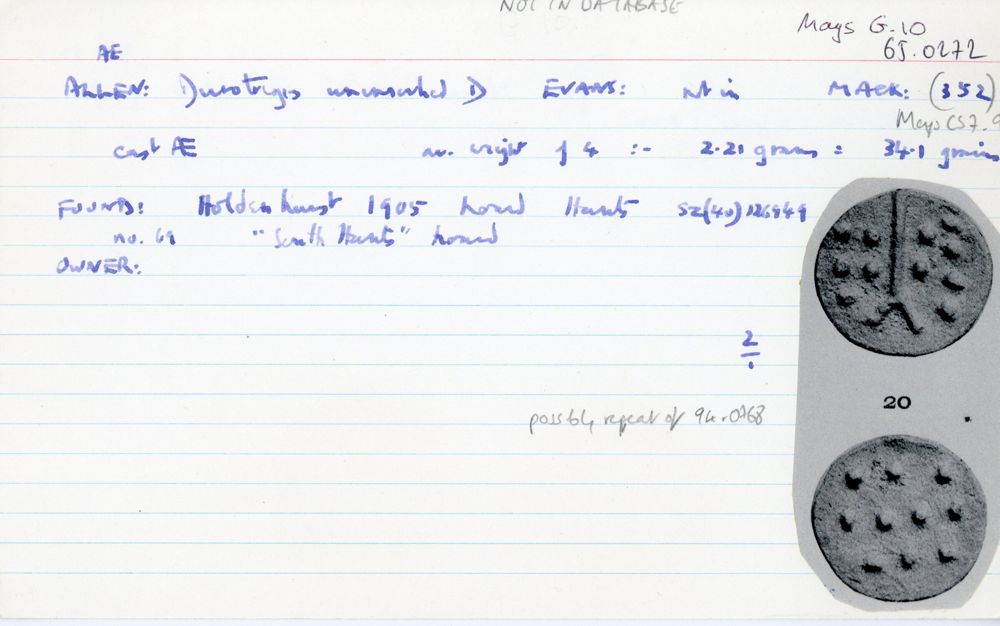 NOT IN DATABASE
Mays G.10
65.0272
AE
ALLEN: Durotriges uninscribed D EVANS: not in MACK: (352)
Mays CS7.9
cast Æ av. weight of 4 :- 2.21 grams = 34.1 grains
FOUND: Holdenhurst 1905 hoard Hants SZ(40)126949
no. 69 "South Hants" hoard
OWNER:
2
1
20
possibly repeat of 94.0768